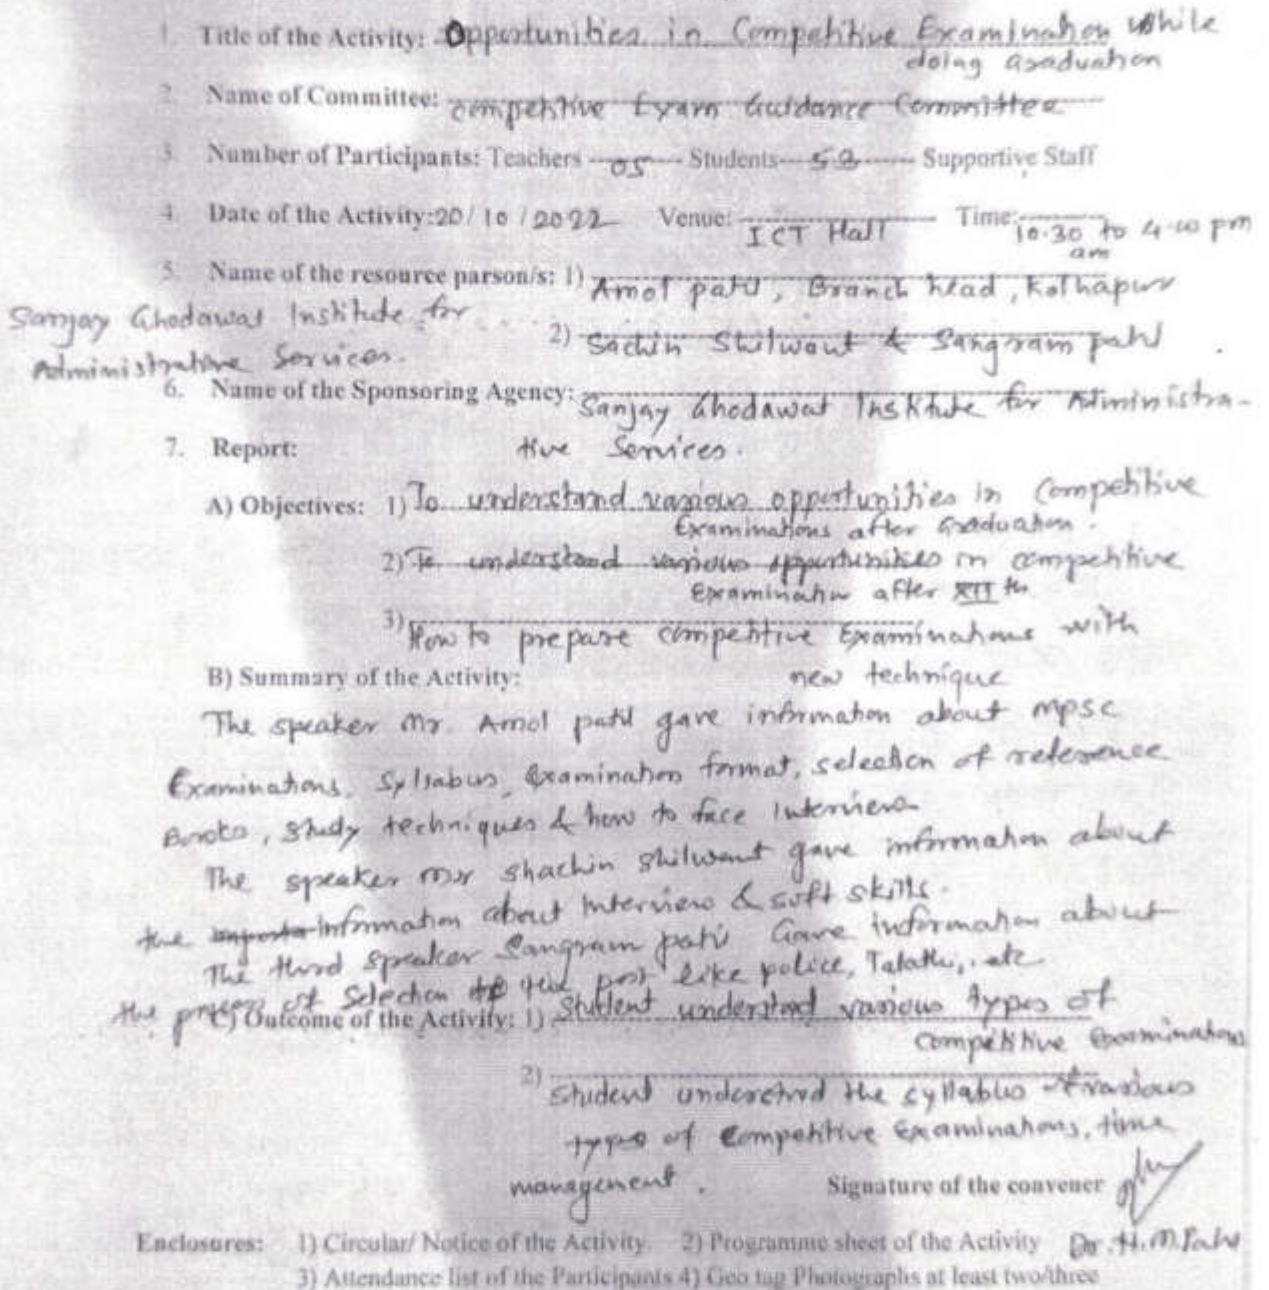 1. Title of the Activity: Opportunities in Competitive Examination while
doing Graduation
2. Name of Committee: Competitive Exam Guidance Committee
3. Number of Participants: Teachers 05 Students Supportive Staff
4. Date of the Activity: 20/10/2022 Venue: ICT Hall Time: 10.30 to 4.00 pm
am
5. Name of the resource parson/s: 1) Amol patil, Branch head, Kolhapur
Sanjay Ghodawat Institute for
2) Sachin Shilwant & Sangram patil
Administrative Services.
6. Name of the Sponsoring Agency: Sanjay Ghodawat Institute for Administra-
7. Report: tive Services.
A) Objectives: 1) To understand various opportunities in Competitive
Examinations after Graduation.
2) To understand various opportunities in competitive
Examination after XII th
3) How to prepare competitive Examinations with
B) Summary of the Activity: new technique
The speaker Mr. Amol patil gave information about MPSC
Examinations, Syllabus, Examination format, selection of reference
Books, study techniques & how to face Interview
The speaker Mr shachin shilwant gave information about
the information about Interview & soft skills.
The third speaker Sangram patil Gave information about
the process of Selection the post like police, Talathi, etc
C) Outcome of the Activity: 1) Student understand various types of
Competitive Examinations
2) Student understand the syllabus of various
types of Competitive Examinations, time
management. Signature of the convener
Enclosures: 1) Circular/ Notice of the Activity. 2) Programme sheet of the Activity Dr. H.M.Patil
3) Attendance list of the Participants 4) Geo tag Photographs at least two/three